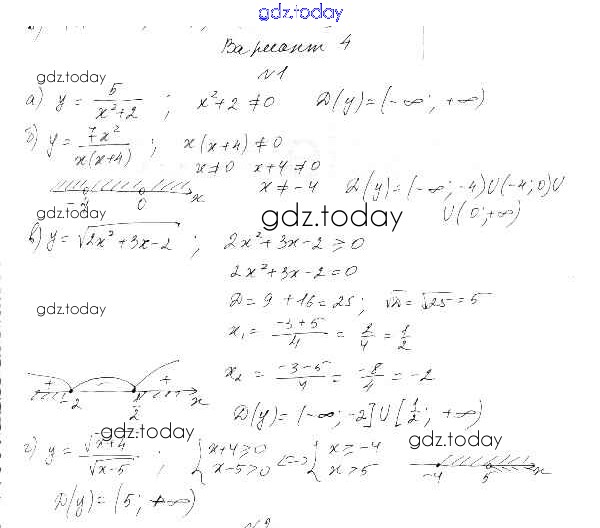 gdz.today
Вариант 4
№1
gdz.today
а) y = 5/(x²+2) ; x²+2 ≠ 0 D(y) = (-∞; +∞)
б) y = 7x²/(x(x+4)) ; x(x+4) ≠ 0
x ≠ 0 x+4 ≠ 0
x ≠ -4 D(y) = (-∞; -4)U(-4; 0)U
-4 0 x
U(0; +∞)
gdz.today
gdz.today
в) y = √(2x²+3x-2) ; 2x²+3x-2 ≥ 0
2x²+3x-2 = 0
D = 9 + 16 = 25; √D = √25 = 5
gdz.today
x₁ = (-3+5)/4 = 2/4 = 1/2
x₂ = (-3-5)/4 = -8/4 = -2
+ - +
-2 1/2 x
D(y) = (-∞; -2]U[1/2; +∞)
gdz.today
gdz.today
г) y = √(x+4)/√(x-5) ; { x+4 ≥ 0 x-5 > 0 <=> { x ≥ -4 x > 5
-4 5 x
D(y) = (5; +∞)
№2